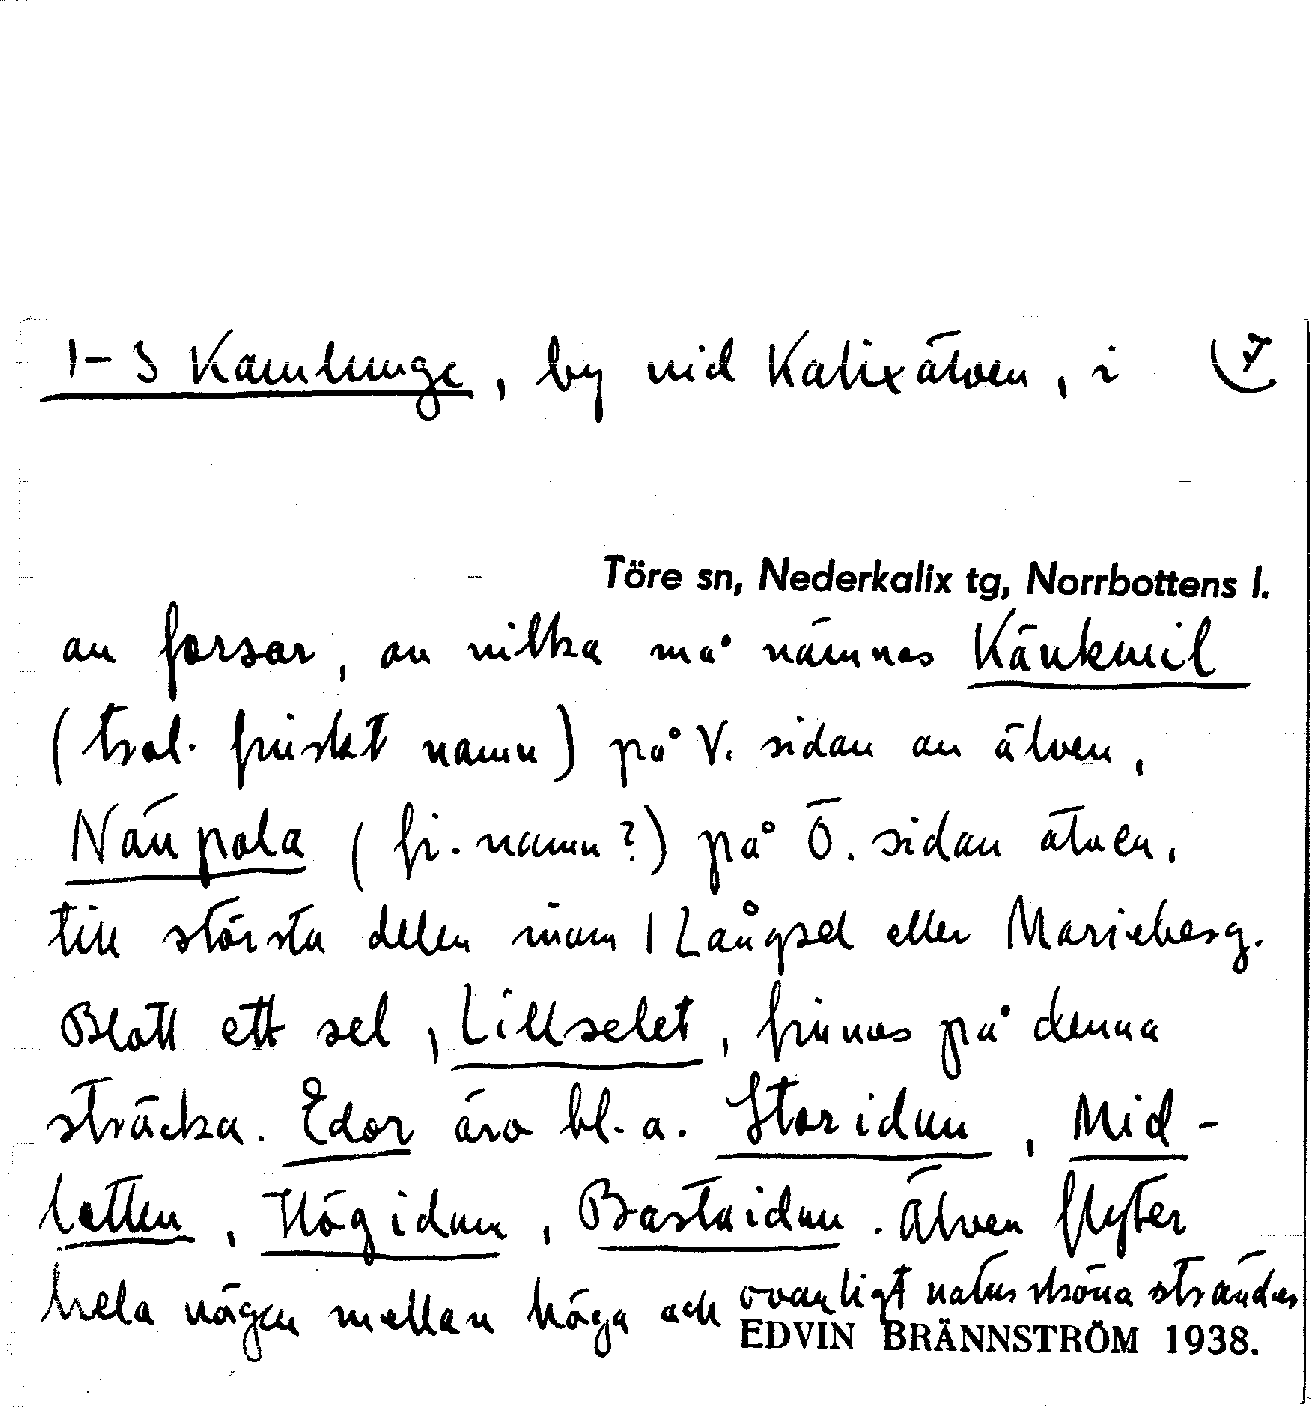 1-3 Kamlunge, by vid Kalixälven, i 7
Töre sn, Nederkalix tg, Norrbottens l.
av forsar, av vilka må nämnas Känkmil
(trol. finskt namn) på V. sidan av älven,
Näupola (fi. namn?) på Ö. sidan älven,
till största delen inom 1 Långsel eller Marieberg.
Blott ett sel, Lillselet, finnes på denna
sträcka. Edor äro bl. a. Storidan, Mid-
letten, Högidan, Bastuidan. Älven flyter
hela vägen mellan höga och ovanligt natursköna stränder
EDVIN BRÄNNSTRÖM 1938.